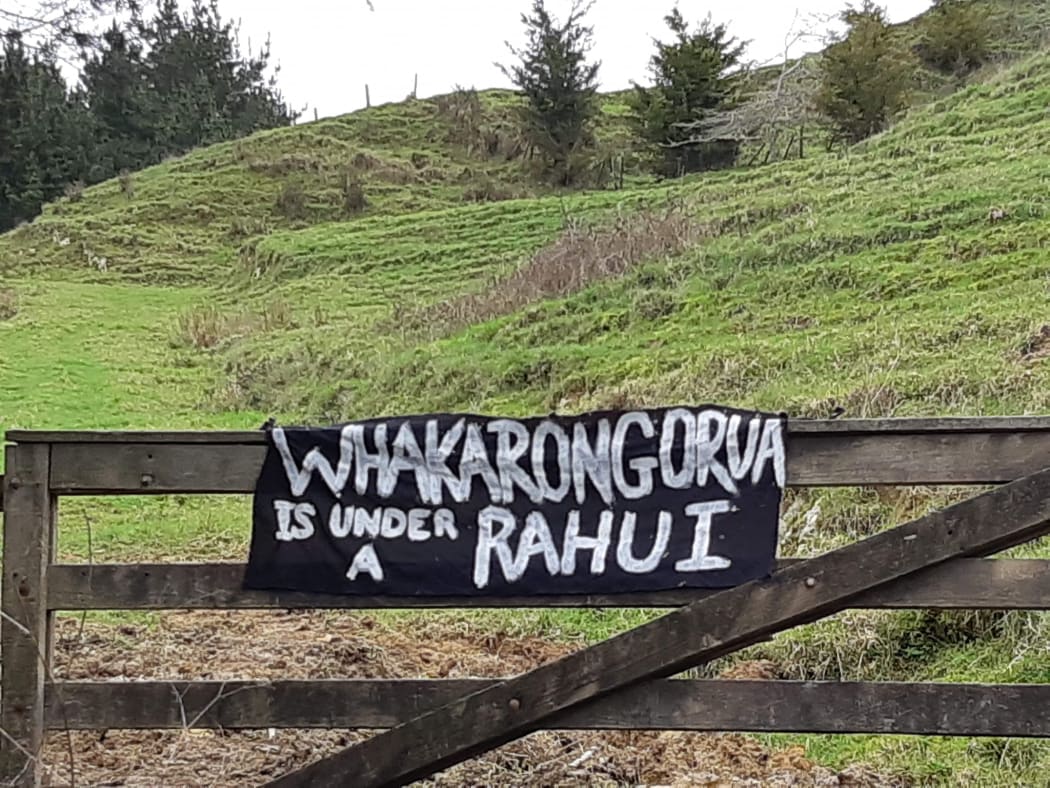 WHAKARONGORUA
IS UNDER A RAHUI